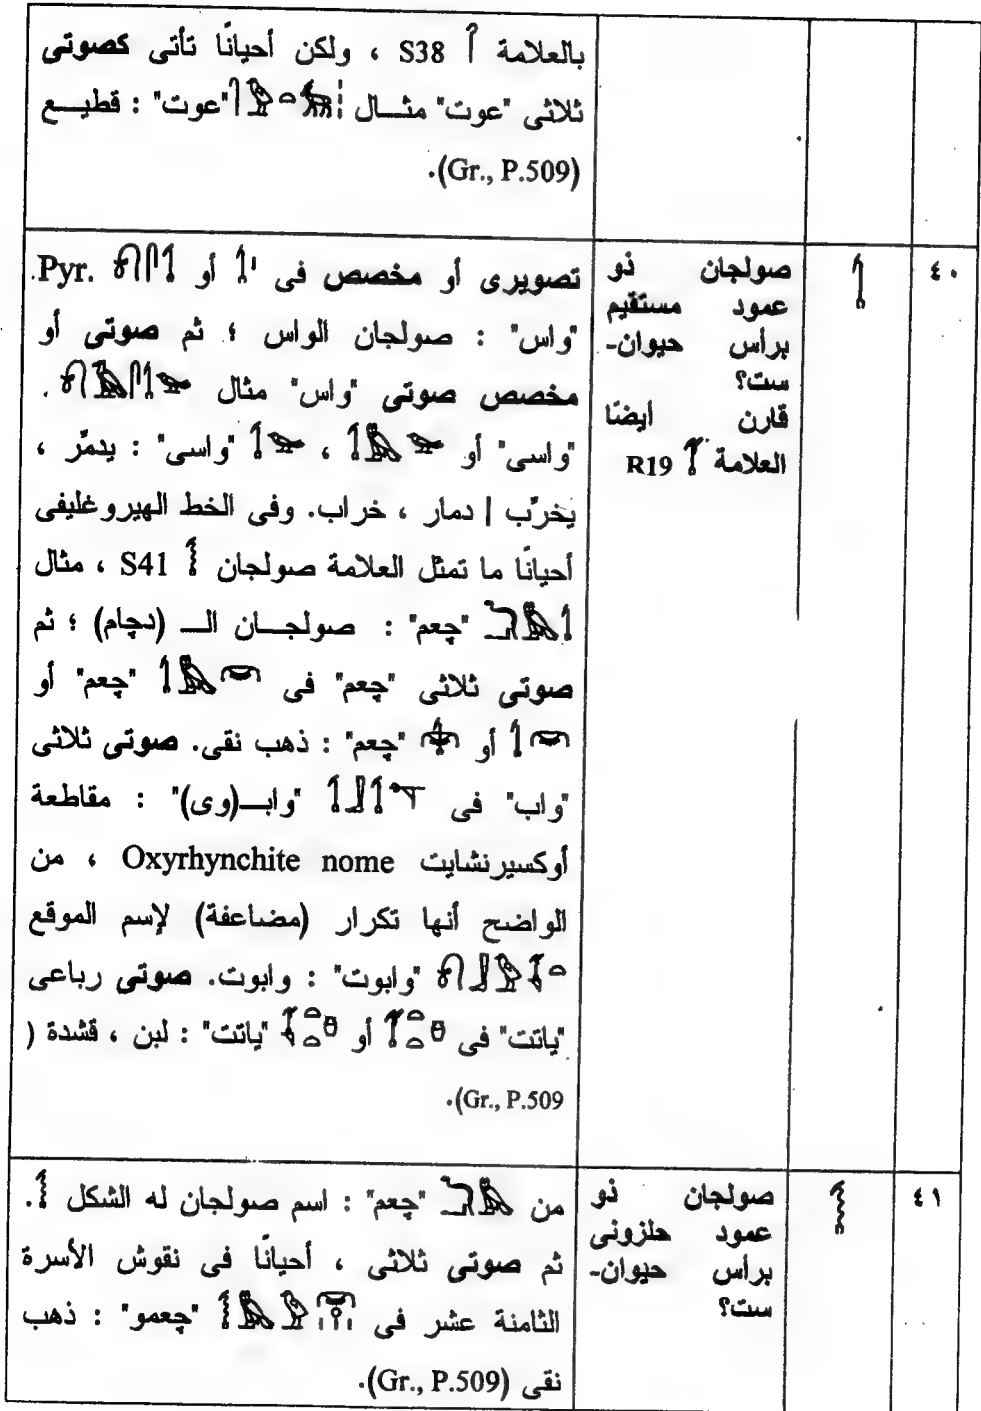 بالعلامة 𓋾 S38 ، ولكن أحيانًا تأتى كصوتى
ثلاثى "عوت" مثــال "عوت" : قطيــع
(Gr., P.509).
٤٠
𓌀
صولجان ذو
عمود مستقيم
برأس حيوان-
ست؟
قارن أيضنا
العلامة 𓋇 R19
تصويرى أو مخصص فى أو Pyr.
"واس" : صولجان الواس ؛ ثم صوتى أو
مخصص صوتى "واس" مثال
"واسى" أو ، "واسى" : يدمِّر ،
يخرِّب | دمار ، خراب. وفى الخط الهيروغليفى
أحيانًا ما تمثل العلامة صولجان 𓌁 S41 ، مثال
"چعم" : صولجــان الــ (دچام) ؛ ثم
صوتى ثلاثى "چعم" فى "چعم" أو
أو "چعم" : ذهب نقى. صوتى ثلاثى
"واب" فى "وابــ(وى)" : مقاطعة
أوكسيرنشايت Oxyrhynchite nome ، من
الواضح أنها تكرار (مضاعفة) لإسم الموقع
"وابوت" : وابوت. صوتى رباعى
"ياتت" فى أو "ياتت" : لبن ، قشدة (
Gr., P.509).
٤١
𓌁
صولجان ذو
عمود حلزونى
برأس حيوان-
ست؟
من "چعم" : اسم صولجان له الشكل 𓌁.
ثم صوتى ثلاثى ، أحيانًا فى نقوش الأسرة
الثامنة عشر فى "چعمو" : ذهب
نقى (Gr., P.509).